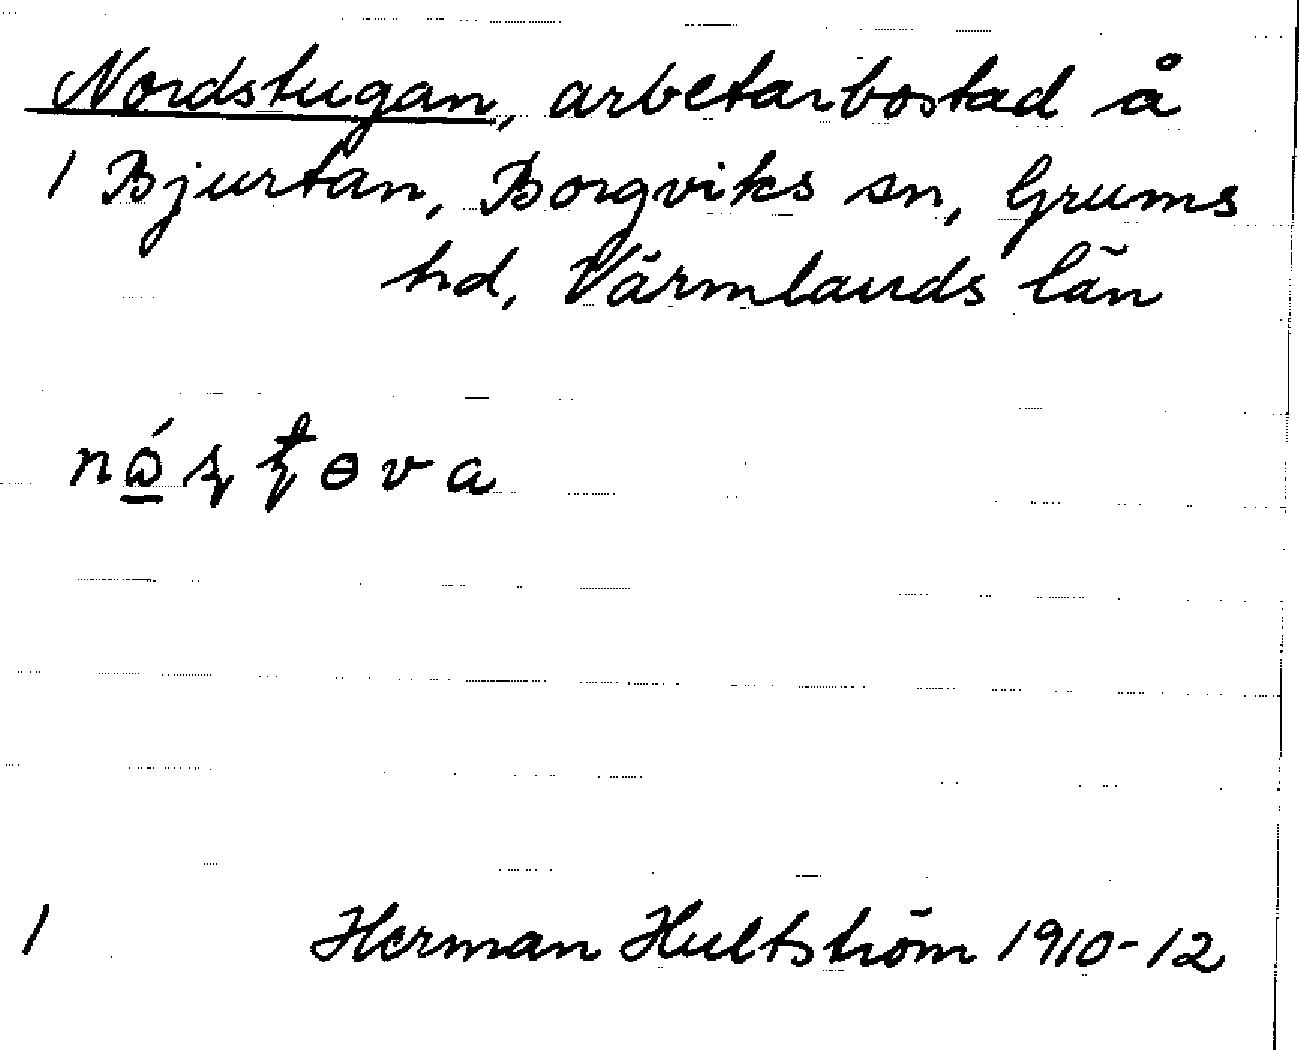 Nordstugan, arbetarbostad å
1 Bjurtan, Borgviks sn, Grums
hd, Värmlands län
1 Herman Hultström 1910-12